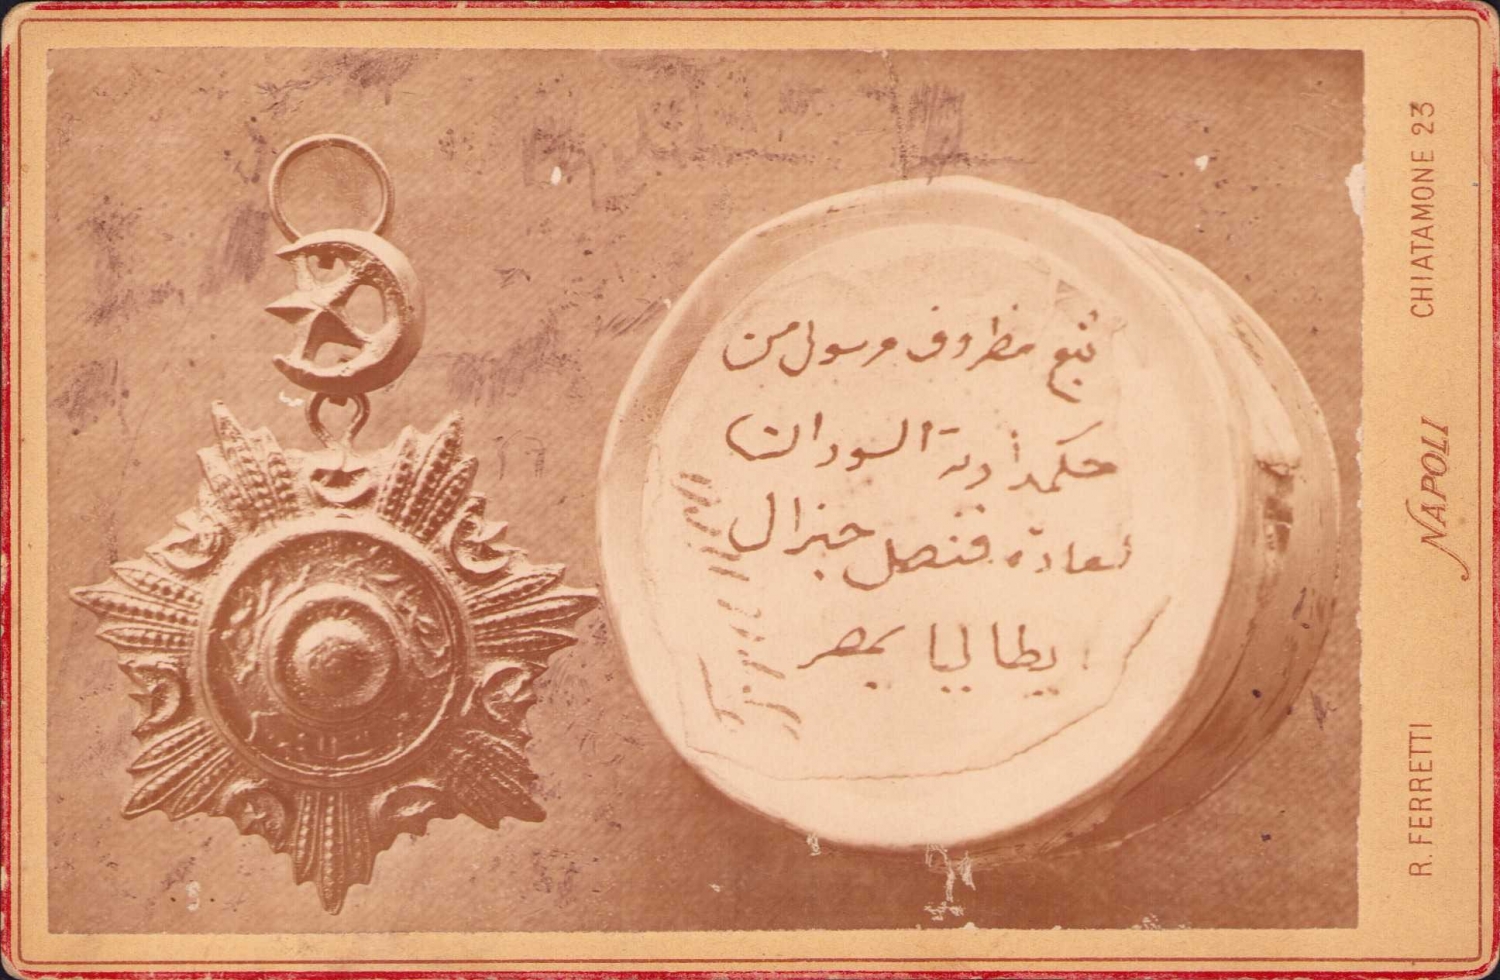 تبع مظروف مرسول من
حكمدارية السودان
لسعادة قنصل جنرال
ايطاليا بمصر
CHIATAMONE 23
NAPOLI
R. FERRETTI